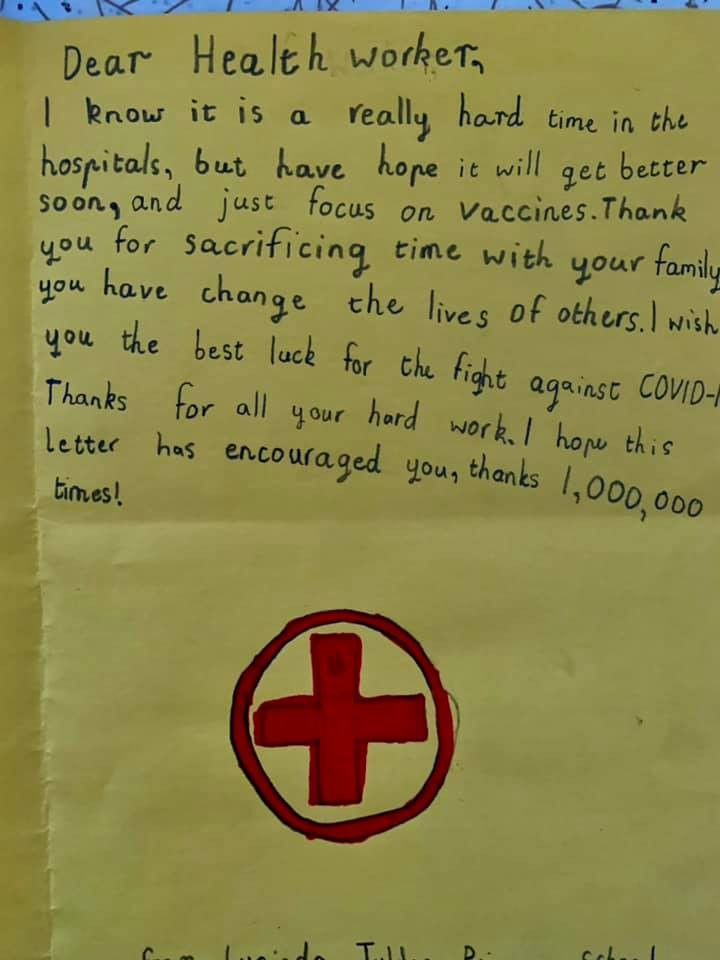 Dear Health worker,
I know it is a really hard time in the
hospitals, but have hope it will get better
soon, and just focus on vaccines. Thank
you for sacrificing time with your family
you have change the lives of others. I wish
you the best luck for the fight against COVID-1
Thanks for all your hard work. I hope this
letter has encouraged you, thanks 1,000,000
times!
from School